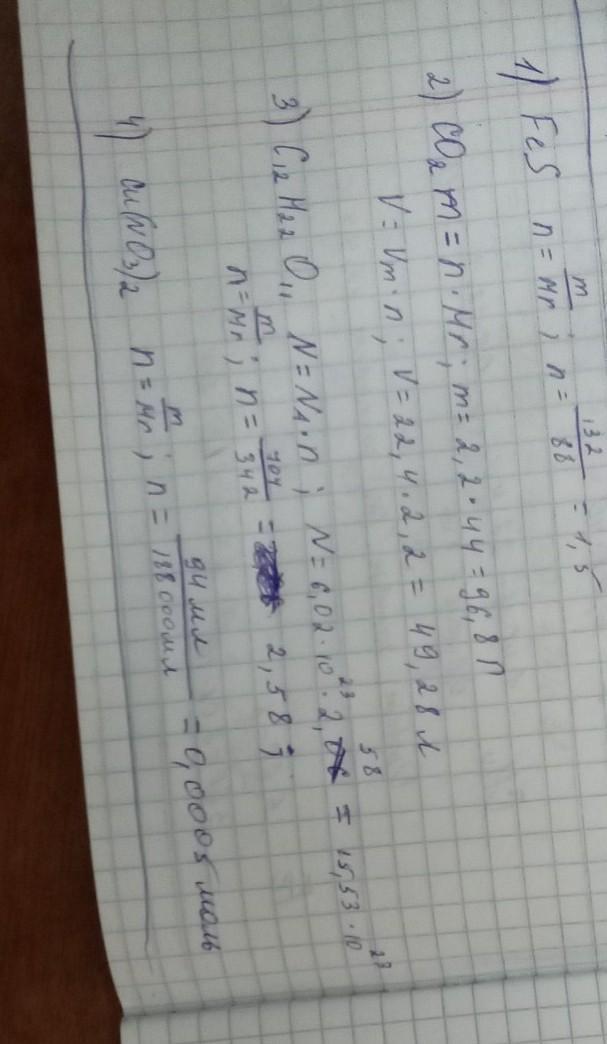 1) FeS n = m/Mr ; n = 132/88 = 1,5
2) CO₂ m = n · Mr ; m = 2,2 · 44 = 96,8 г
V = Vm · n ; V = 22,4 · 2,2 = 49,28 л
3) C₁₂H₂₂O₁₁ N = NA · n ; N = 6,02 · 10²³ · 2,58 = 15,53 · 10²³
n = m/Mr ; n = /342 = 2,58
4) Cu(NO₃)₂ n = m/Mr ; n = 94 мл/188000мл = 0,0005 моль